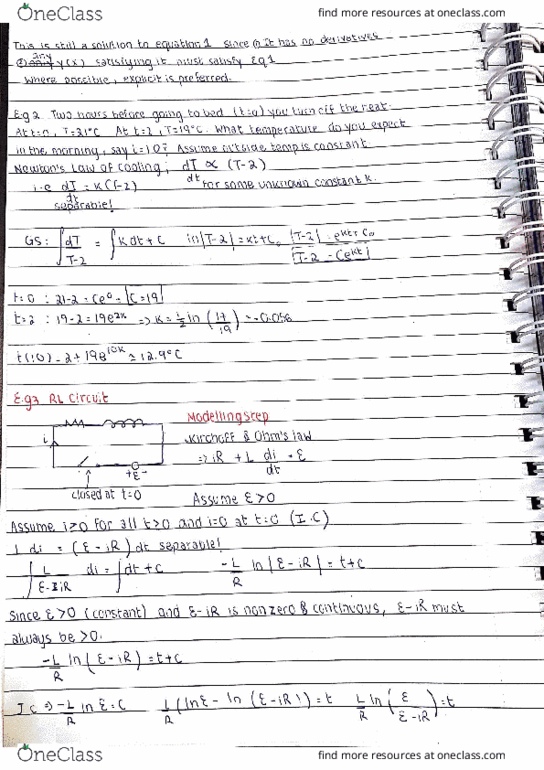 OneClass
find more resources at oneclass.com
This is still a solution to equation 1 since it has no derivatives
any y(x) satisfying it must satisfy Eq 1
Where possible, explicit is preferred.
Eg 2. Two hours before going to bed (t=0) you turn off the heat.
At t=0, T=21°C At t=2, T=19°C. What temperature do you expect
in the morning, say t=10? Assume outside temp is constant
Newton's Law of Cooling, dT/dt ∝ (T-2)
i.e dT/dt = K(T-2) for some unknown constant K.
separable!
GS: ∫ dT/T-2 = ∫ Kdt + C ln|T-2| = Kt + C₀ |T-2| = e^Kt+C₀
T-2 = Ce^Kt
t=0 : 21-2 = Ce⁰ = C=19
t=2 : 19-2 = 19e^2K ⇒ K = 1/2 ln (17/19) = -0.056
t(10) = 2 + 19e^10K ≈ 12.9°C
E.g 3 RL Circuit
Modelling step
i
Kirchoff & Ohm's law
⇒ iR + L di/dt = ε
+ε-
closed at t=0
Assume ε>0
Assume i≥0 for all t>0 and i=0 at t=0 (I.C)
L di = (ε-iR) dt separable!
∫ L/ε-iR di = ∫ dt + C -L/R ln|ε-iR| = t+C
Since ε>0 (constant) and ε-iR is nonzero & continuous, ε-iR must
always be >0.
-L/R ln(ε-iR) = t+C
IC ⇒ -L/R ln ε = C L/R (ln ε - ln (ε-iR)) = t L/R ln (ε/ε-iR) = t
OneClass
find more resources at oneclass.com